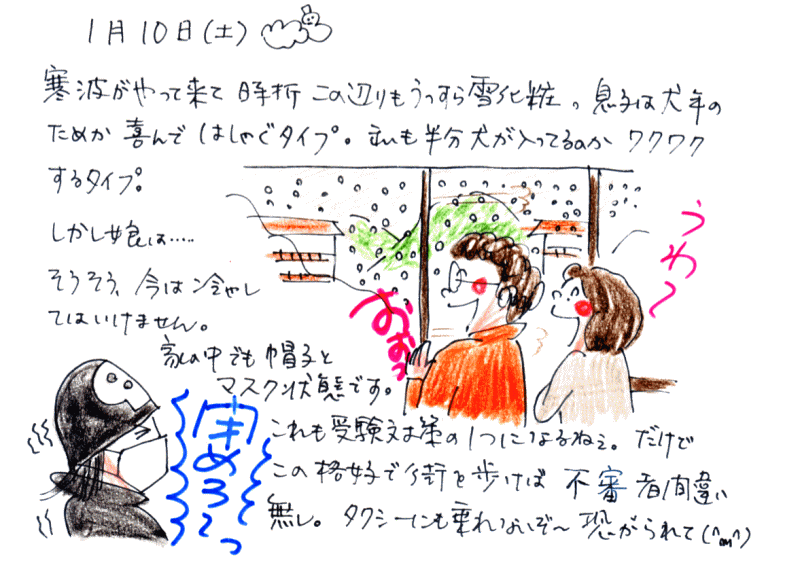 1月10日(土)
寒波がやって来て 時折 この辺りもうっすら雪化粧。息子は犬年の
ためか 喜んで はしゃぐタイプ。私も半分犬が入ってるのか ワクワク
するタイプ。
しかし娘は.....
そうそう、今は冷やし
てはいけません。
家の中でも帽子と
マスク状態です。
うわ〜
おおっ
閉めろ〜っ
これも受験対策の1つになるねぇ。だけど
この格好で街を歩けば 不審者間違い
無し。タクシーにも乗れないぞ〜 恐がられて(^m^)